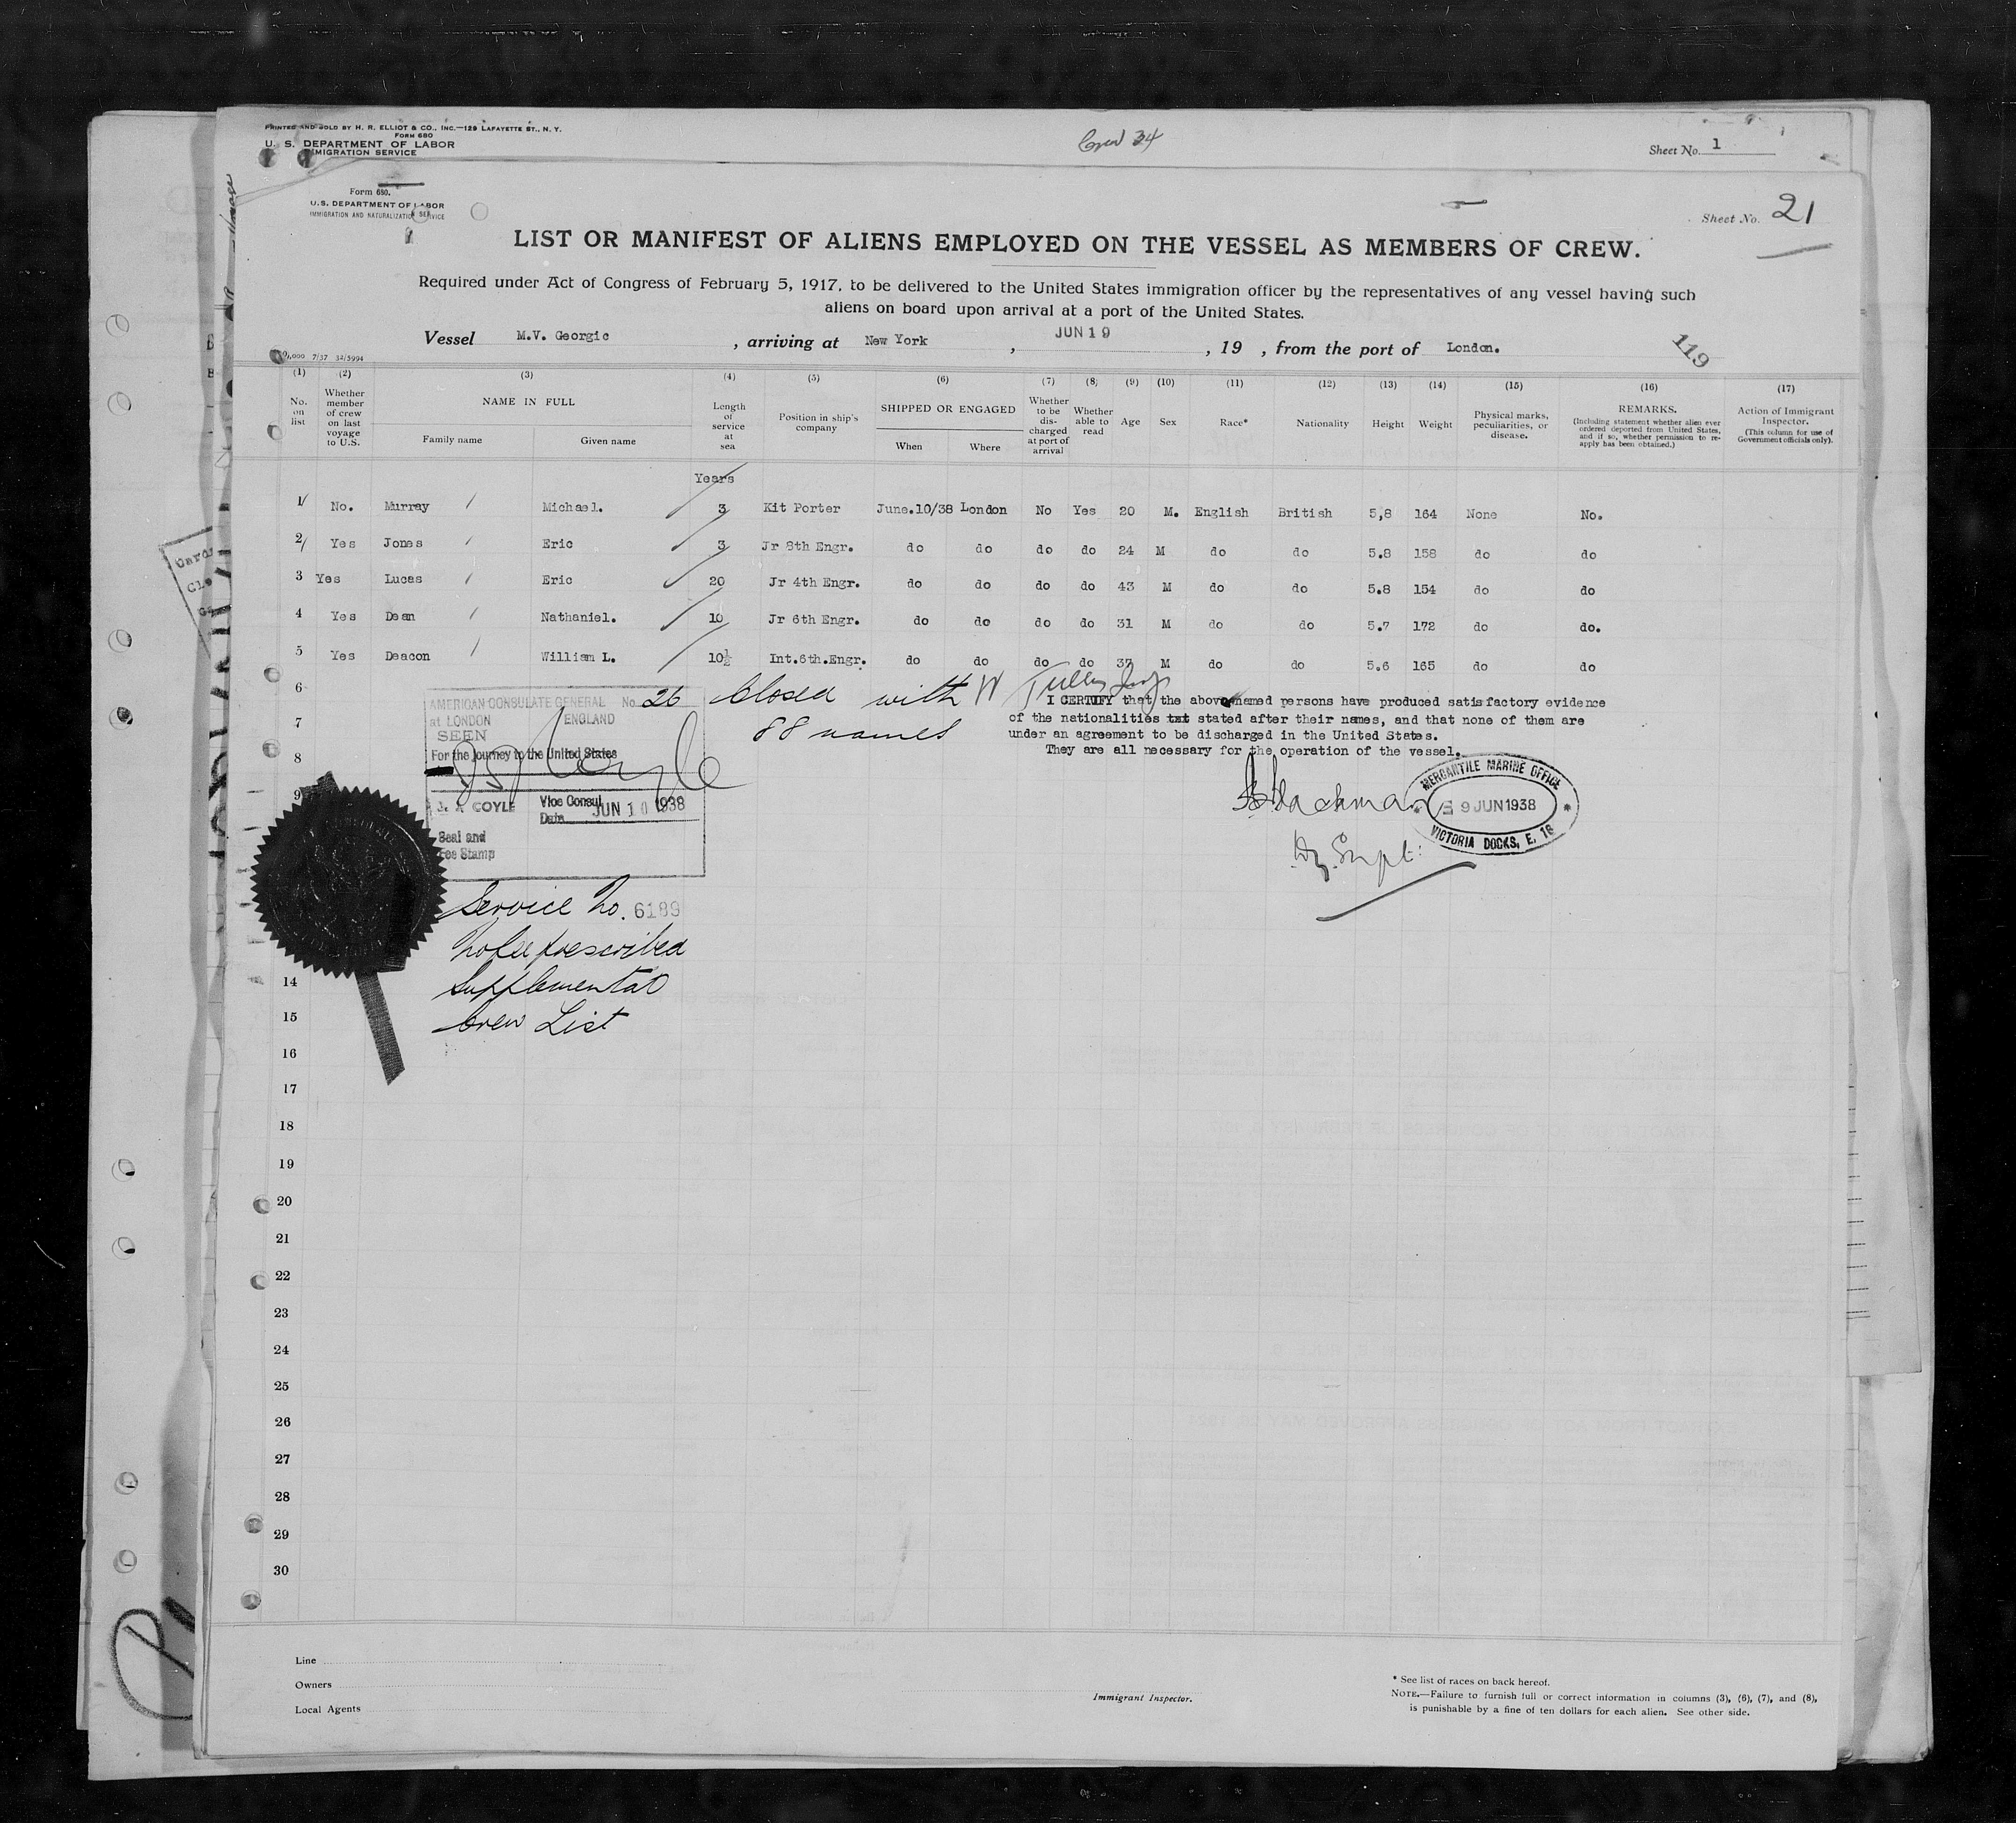 PRINTED AND SOLD BY H. R. ELLIOT & CO., INC.—129 LAFAYETTE ST., N. Y.
FORM 680
U. S. DEPARTMENT OF LABOR
IMMIGRATION SERVICE
Crew 34
Sheet No. 1
Form 680.
U.S. DEPARTMENT OF LABOR
IMMIGRATION AND NATURALIZATION SERVICE
Sheet No. 21
LIST OR MANIFEST OF ALIENS EMPLOYED ON THE VESSEL AS MEMBERS OF CREW.
Required under Act of Congress of February 5, 1917, to be delivered to the United States immigration officer by the representatives of any vessel having such
aliens on board upon arrival at a port of the United States.
Vessel M.V. Georgic, arriving at New York, JUN 19, 19 , from the port of London.
119
7/37 32/5994
(1) (2) (3) (4) (5) (6) (7) (8) (9) (10) (11) (12) (13) (14) (15) (16) (17)
No. on list
Whether member of crew on last voyage to U.S.
NAME IN FULL
Family name
Given name
Length of service at sea
Position in ship's company
SHIPPED OR ENGAGED
When
Where
Whether to be discharged at port of arrival
Whether able to read
Age
Sex
Race*
Nationality
Height
Weight
Physical marks, peculiarities, or disease.
REMARKS.
(Including statement whether alien ever ordered deported from United States, and if so, whether permission to re-apply has been obtained.)
Action of Immigrant Inspector.
(This column for use of Government officials only).
Years
1 No. Murray Michael. 3 Kit Porter June.10/38 London No Yes 20 M. English British 5,8 164 None No.
2 Yes Jones Eric 3 Jr 8th Engr. do do do do 24 M do do 5.8 158 do do
3 Yes Lucas Eric 20 Jr 4th Engr. do do do do 43 M do do 5.8 154 do do
4 Yes Dean Nathaniel. 10 Jr 6th Engr. do do do do 31 M do do 5.7 172 do do.
5 Yes Deacon William L. 10½ Int.6th.Engr. do do do do 37 M do do 5.6 165 do do
6
7
8
9
AMERICAN CONSULATE GENERAL No. 26
at LONDON ENGLAND
SEEN
For the journey to the United States
J. A COYLE Vice Consul
Date JUN 10 1938
Seal and
Fee Stamp
Closed with W
88 names
I CERTIFY that the above named persons have produced satisfactory evidence
of the nationalities txt stated after their names, and that none of them are
under an agreement to be discharged in the United States.
They are all necessary for the operation of the vessel.
Dy. Supt:
MERCANTILE MARINE OFFICE
9 JUN 1938
VICTORIA DOCKS, E. 16
Service No. 6189
No fee prescribed
Supplemental
Crew List
14
15
16
17
18
19
20
21
22
23
24
25
26
27
28
29
30
Line
Owners
Local Agents
Immigrant Inspector.
* See list of races on back hereof.
NOTE.—Failure to furnish full or correct information in columns (3), (6), (7), and (8),
is punishable by a fine of ten dollars for each alien. See other side.